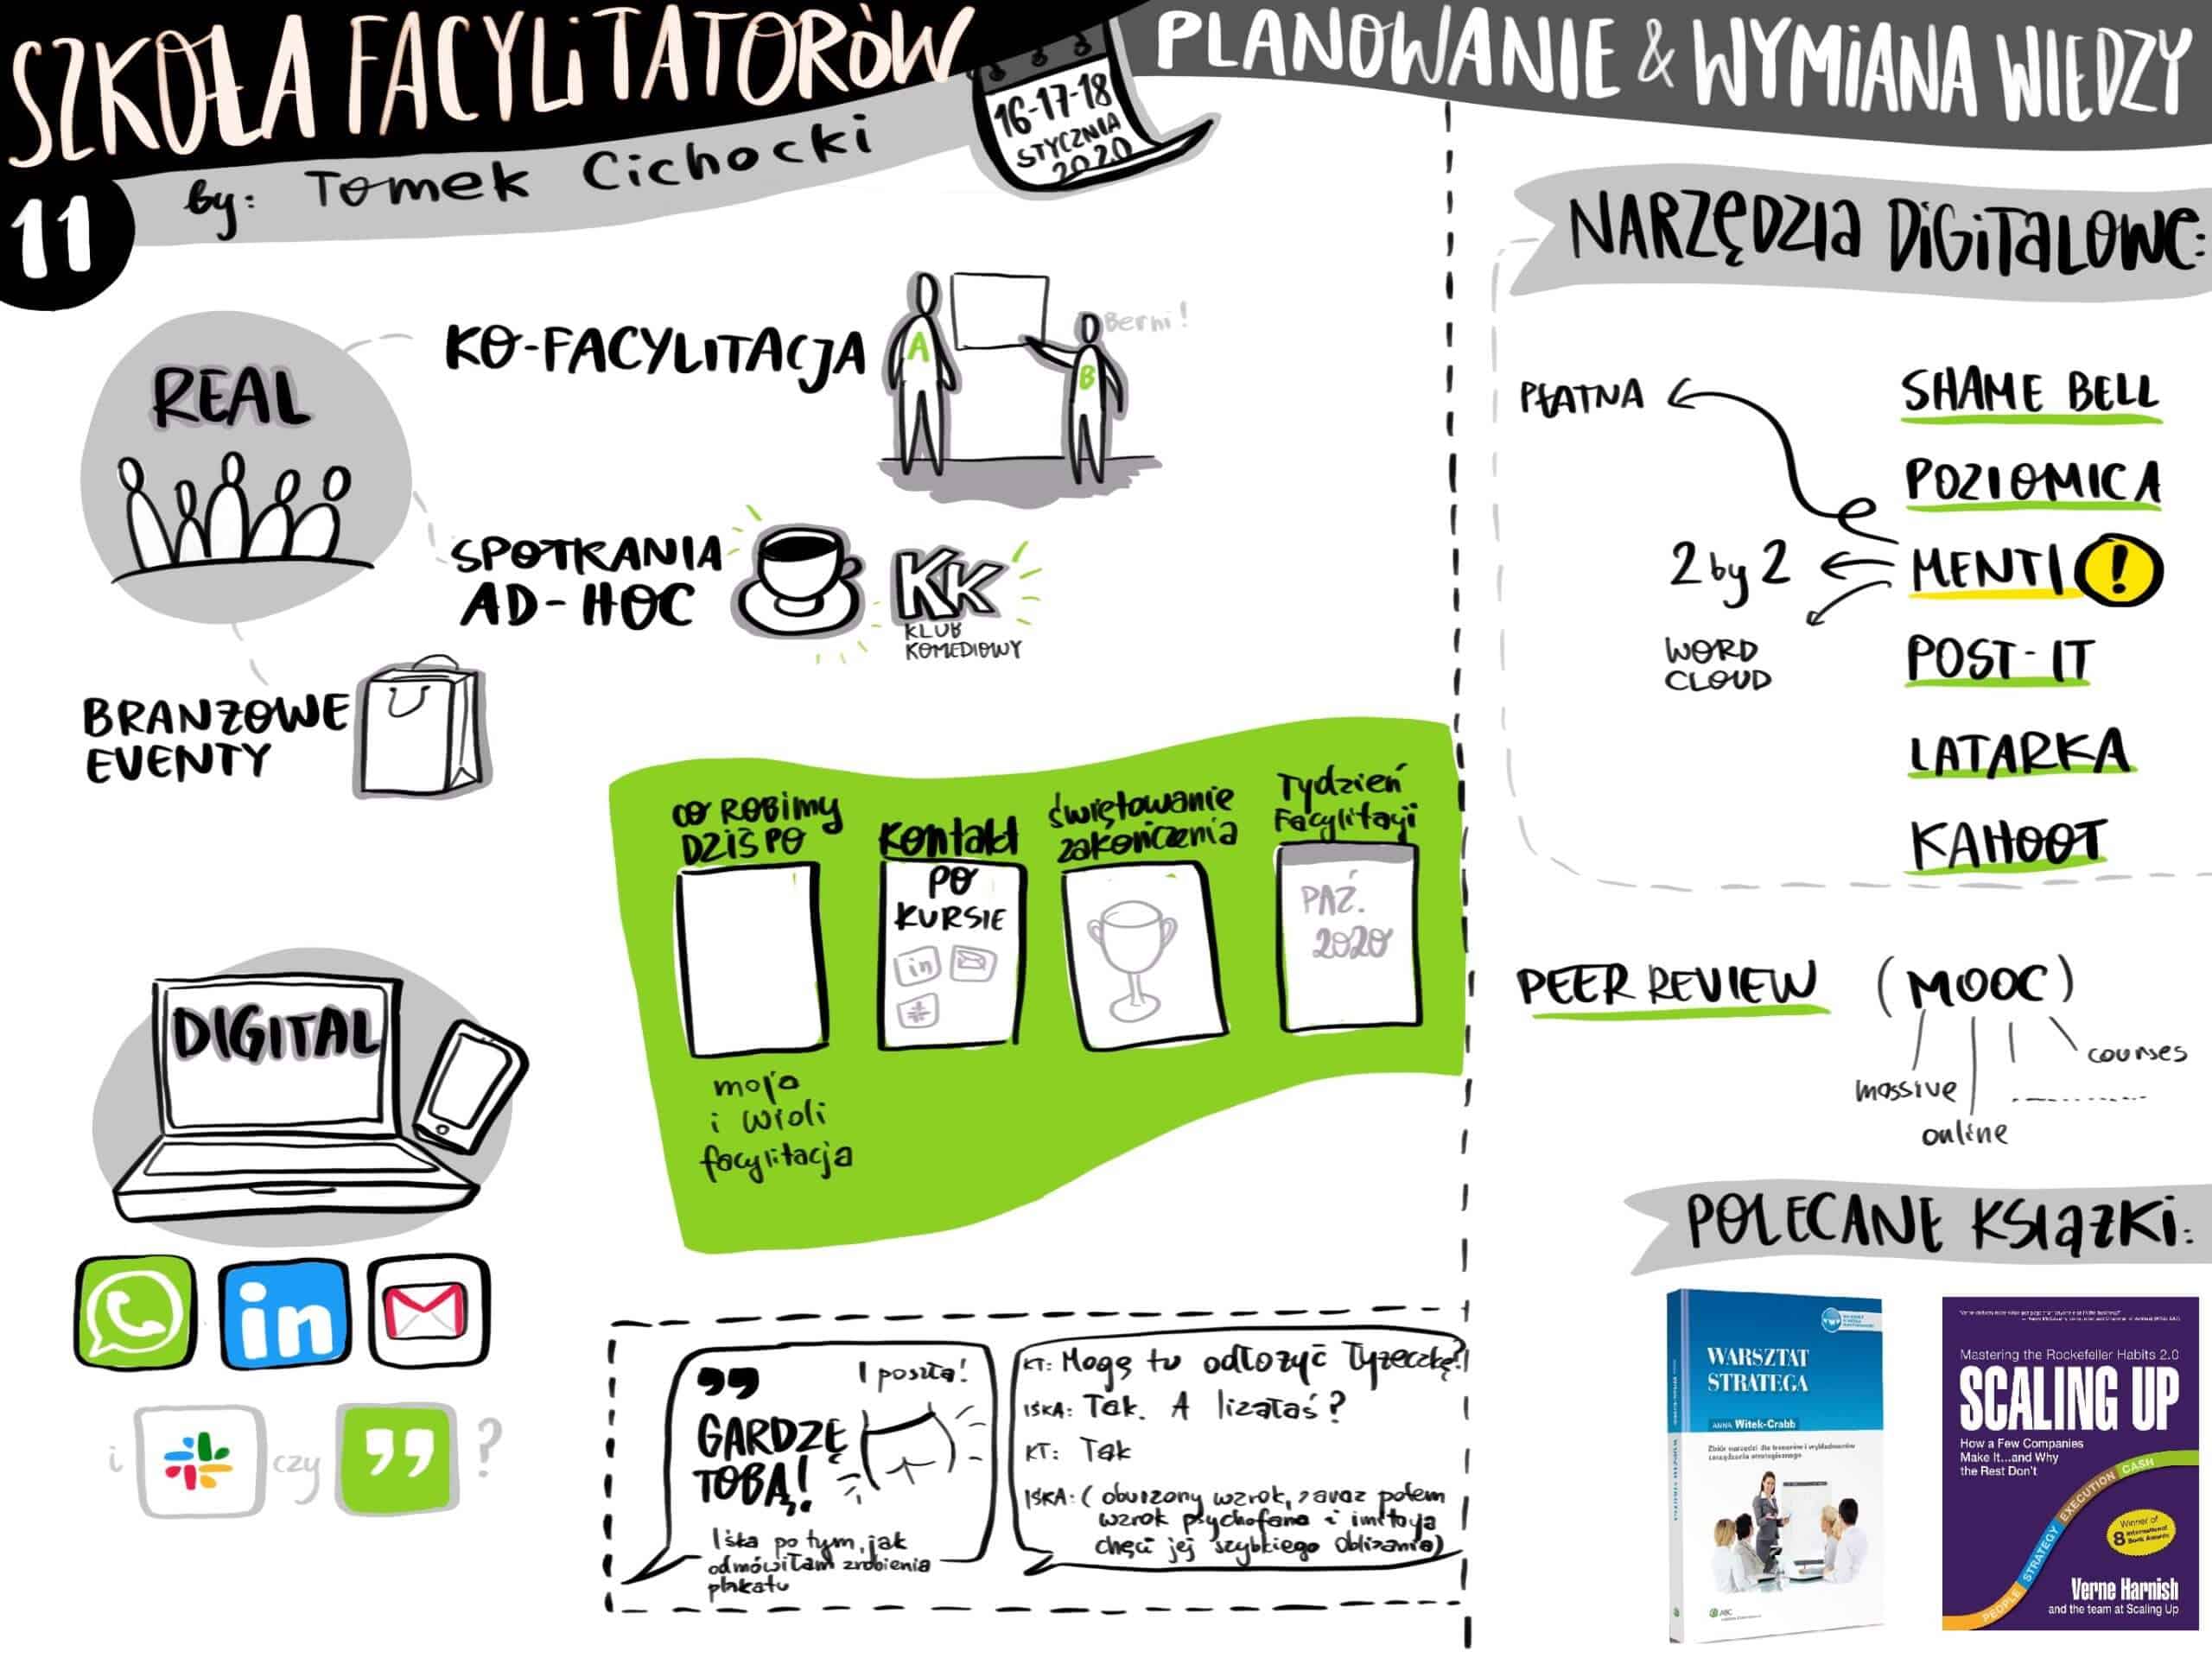 SZKOŁA FACYLITATORÓW
by: Tomek Cichocki
11
16-17-18
STYCZNIA
2020
PLANOWANIE & WYMIANA WIEDZY
REAL
KO-FACYLITACJA
A
B
Berni!
SPOTKANIA
AD-HOC
KK
KLUB
KOMEDIOWY
BRANŻOWE
EVENTY
DIGITAL
in
i
czy
?
CO ROBIMY
DZIŚ PO
moja
i Wioli
facylitacja
Kontakt
PO
KURSIE
in
świętowanie
zakończenia
Tydzień
Facylitacji
PAŹ.
2020
I poszła!
GARDZĘ
TOBĄ!
Iśka po tym, jak
odmówiłam zrobienia
plakatu
KT: Mogę tu odłożyć łyżeczkę?
IŚKA: Tak. A lizałaś?
KT: Tak
IŚKA: (oburzony wzrok, zaraz potem
wzrok psychofana i imitacja
chęci jej szybkiego oblizania)
NARZĘDZIA DIGITALOWE:
PŁATNA
SHAME BELL
POZIOMICA
2 by 2
MENTI !
WORD
CLOUD
POST-IT
LATARKA
KAHOOT
PEER REVIEW (MOOC)
courses
massive
online
POLECANE KSIĄŻKI:
WARSZTAT
STRATEGA
ANNA Witek-Crabb
Zbiór narzędzi dla trenerów i wykładowców
zarządzania strategicznego
ABC
Mastering the Rockefeller Habits 2.0
SCALING UP
How a Few Companies
Make It...and Why
the Rest Don't
PEOPLE STRATEGY EXECUTION CASH
Winner of
8 International
Book Awards
Verne Harnish
and the team at Scaling Up